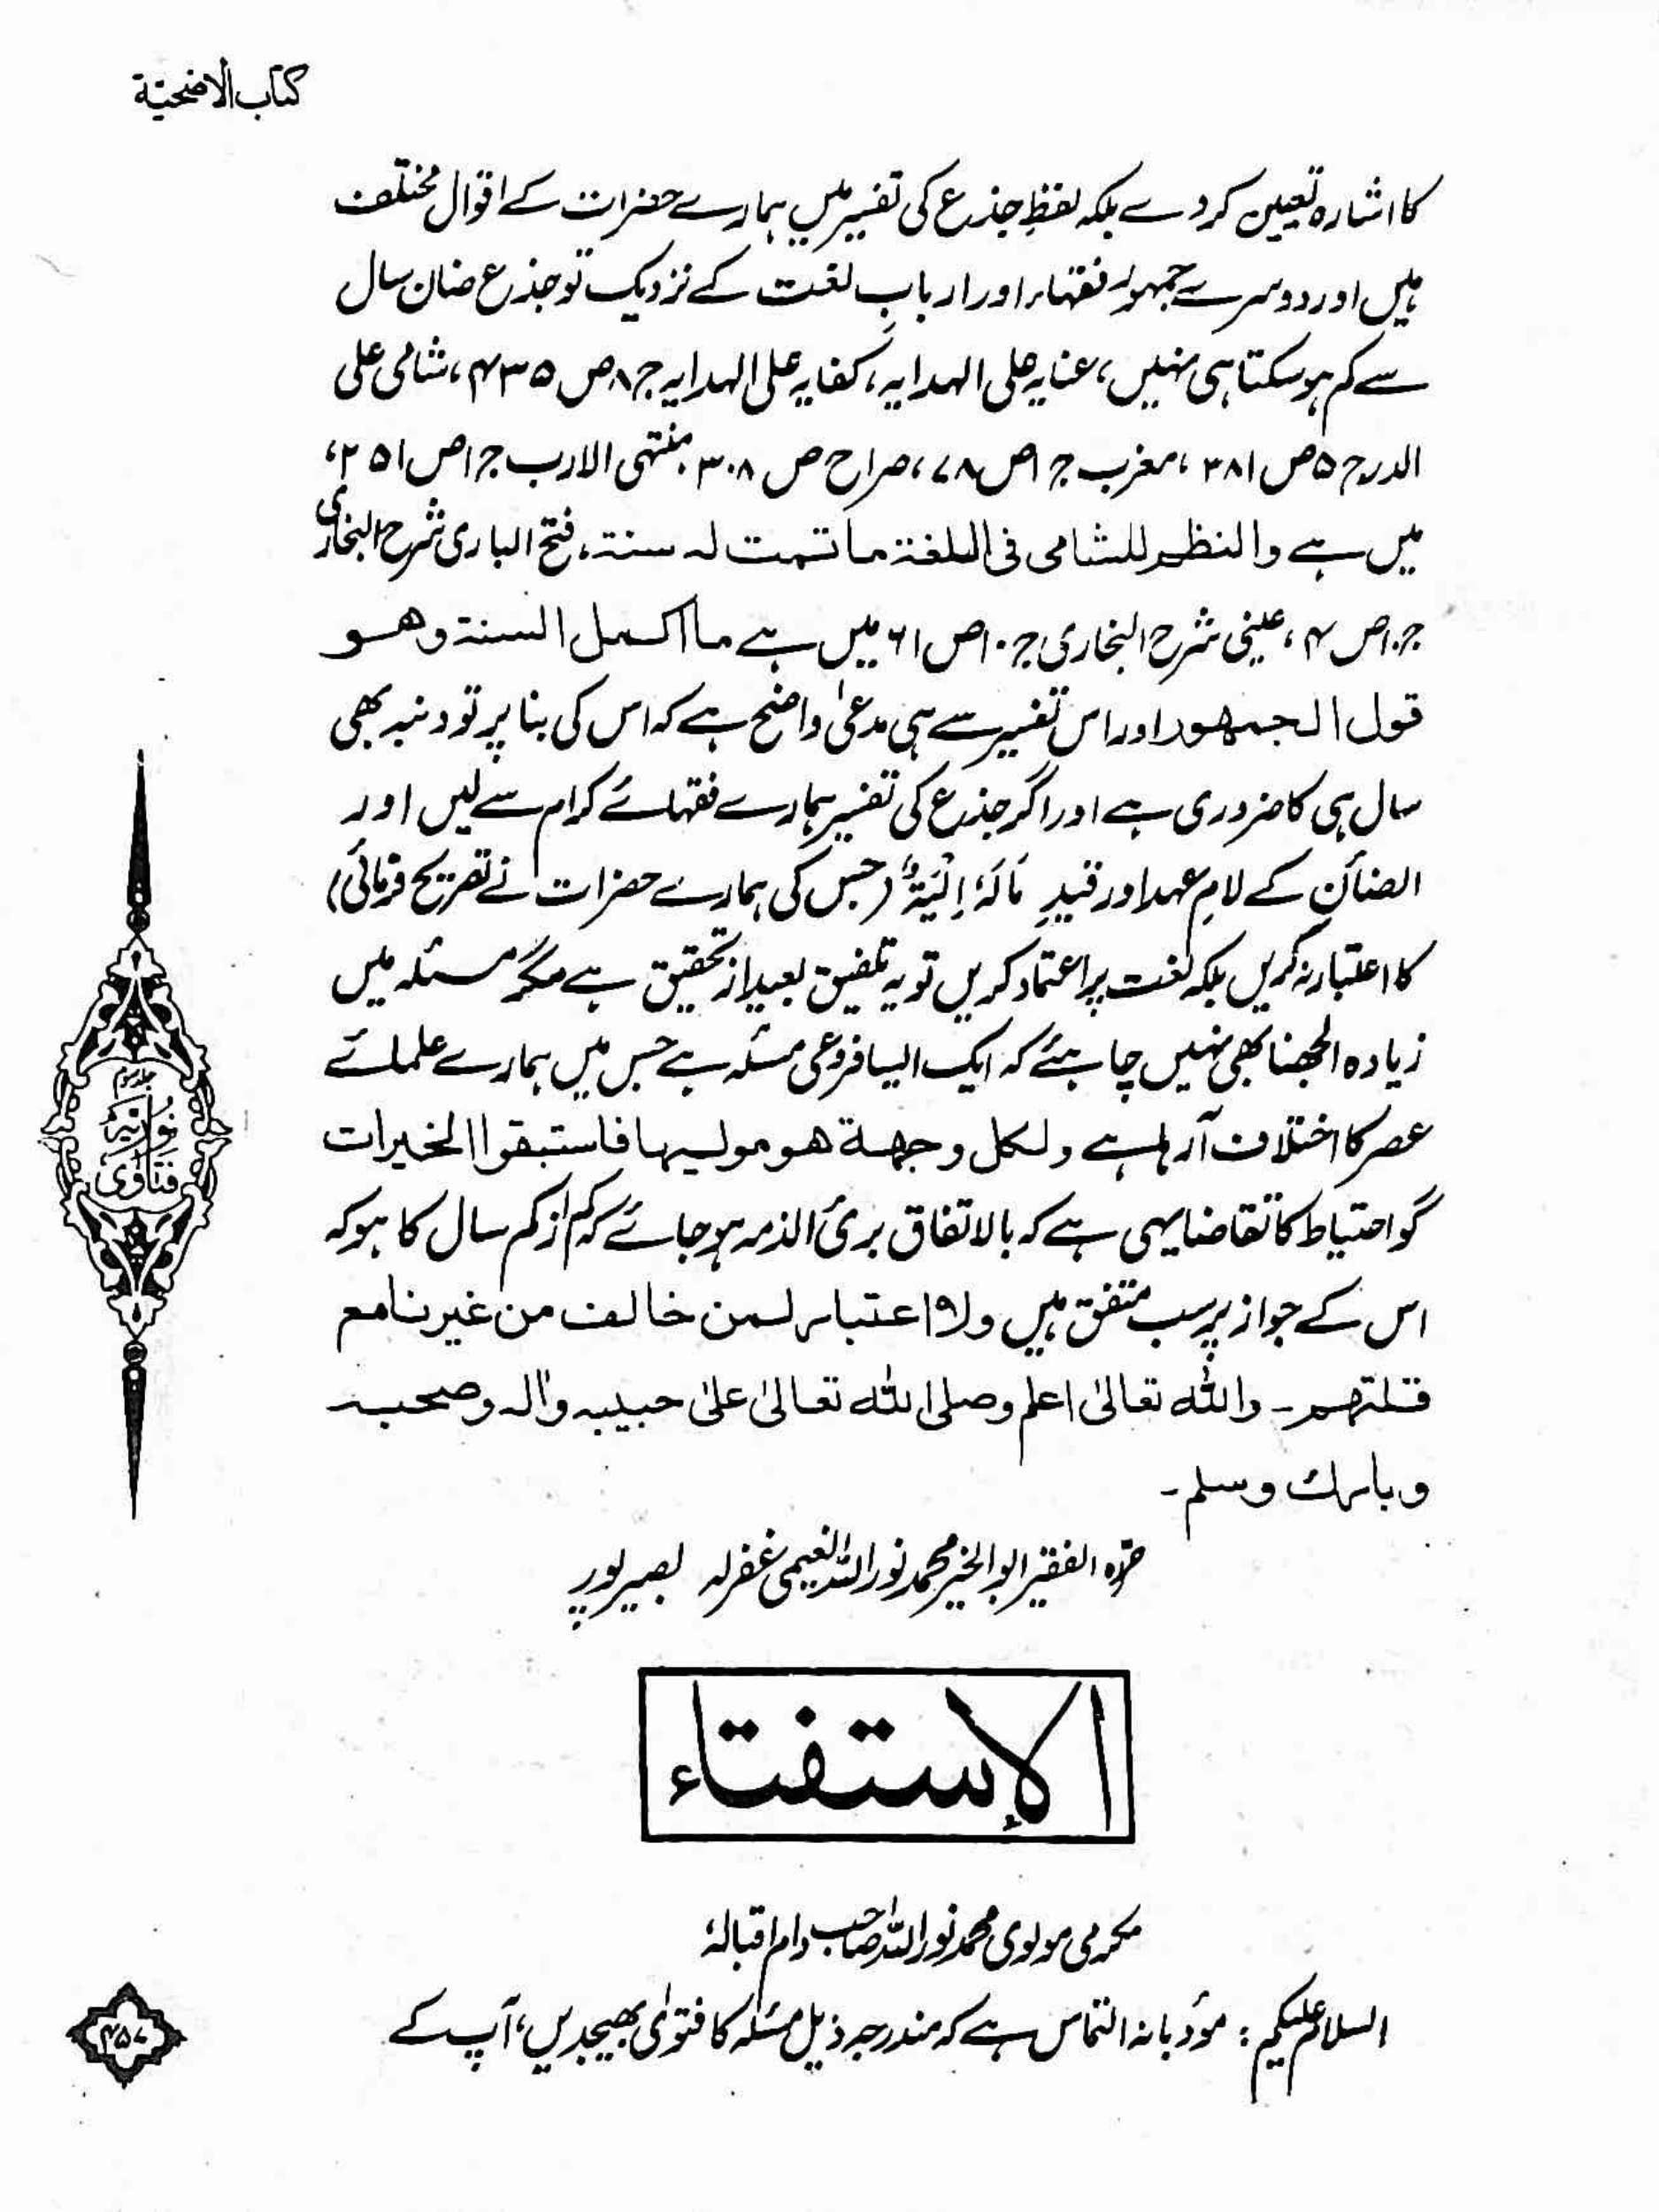 کتاب الاضحیۃ
کا اشارہ تعیین کر دے بلکہ لفظِ جذع کی تفسیر میں ہمارے حضرات کے اقوال مختلف
ہیں اور دوسرے جمہور فقہاء اور اربابِ لغت کے نزدیک تو جذع ضان سال
سے کم ہو سکتا ہی نہیں، عنایہ علی الہدایہ، کفایہ علی الہدایہ ج ۸ ص ۴۳۵، شامی علی
الدر ج ۵ ص ۲۸۱، مغرب ج ۱ ص ۷۸، صراح ص ۳۰۸، منتہی الارب ج ۱ ص ۲۵۱،
میں ہے والنظم للشامی فی اللغۃ ما تمت لہ سنۃ، فتح الباری شرح البخاری
ج ۱۰ ص ۴، عینی شرح البخاری ج ۱۰ ص ۶۱ میں ہے ما اکمل السنۃ وھو
قول الجمھور اور اس تفسیر سے ہی مدعیٰ واضح ہے کہ اس کی بنا پر تو دنبہ بھی
سال ہی کا ضروری ہے اور اگر جذع کی تفسیر ہمارے فقہائے کرام سے لیں اور
الضأن کے لامِ عہد اور قیدِ مَالَہٗ اِلْیَۃٌ (جس کی ہمارے حضرات نے تصریح فرمائی)
کا اعتبار نہ کریں بلکہ لغت پر اعتماد کریں تو یہ تلفیق بعید از تحقیق ہے مگر مسئلہ میں
زیادہ الجھنا بھی نہیں چاہئے کہ ایک ایسا فروعی مسئلہ ہے جس میں ہمارے علمائے
عصر کا اختلاف آ رہا ہے ولکل وجھۃ ھو مولیہا فاستبقوا الخیرات
گو احتیاط کا تقاضا یہی ہے کہ بالاتفاق بریٔ الذمہ ہو جائے کہ کم از کم سال کا ہو کہ
اس کے جواز پر سب متفق ہیں ولا اعتبار لمن خالف من غیرنا مع
قلتھم۔ واللہ تعالیٰ اعلم وصلی اللہ تعالیٰ علیٰ حبیبہ واٰلہ وصحبہ
وبارك وسلم۔
حرّرہ الفقیر ابوالخیر محمد نور اللہ النعیمی غفرلہ بصیر پور
جلد سوم
فتاوی نوریہ
الاستفتاء
مکرمی مولوی محمد نور اللہ صاحب دام اقبالہٗ
السلام علیکم: مؤدبانہ التماس ہے کہ مندرجہ ذیل مسئلہ کا فتوٰی بھیج دیں، آپ کے
۴۵۷